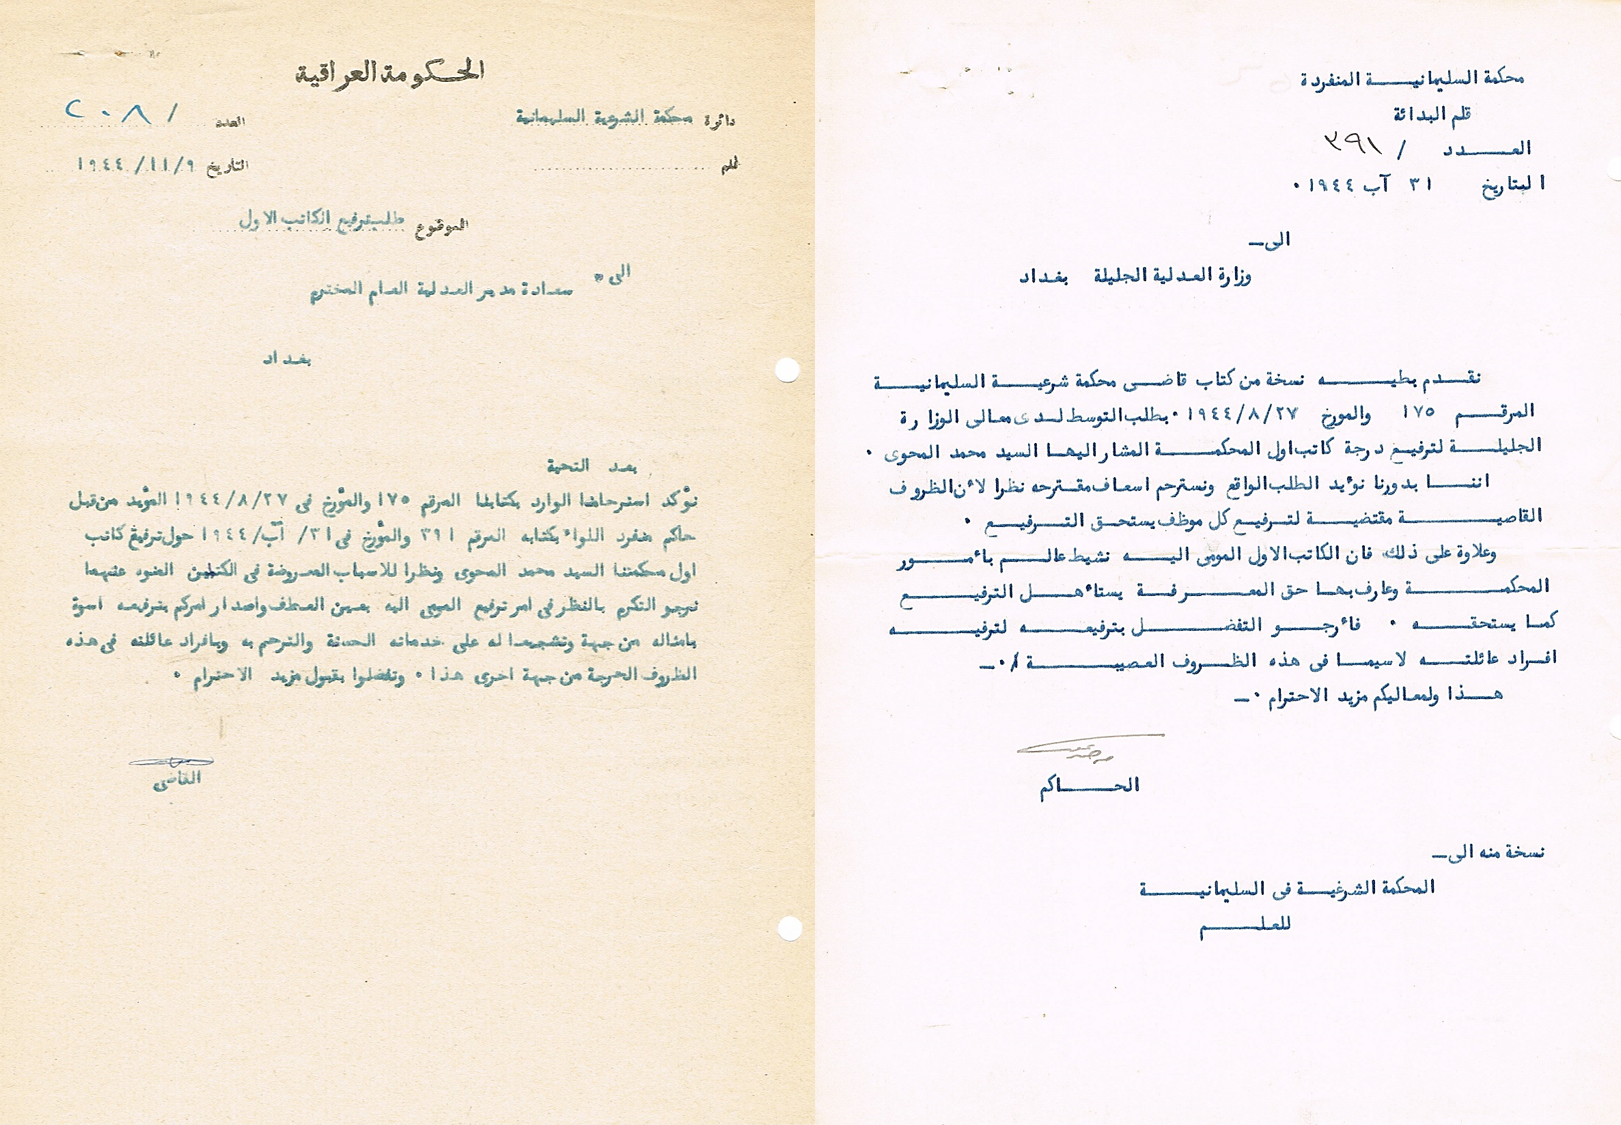 محكمة السليمانيـــة المنفردة
قلم البدائة
العـــدد / ٣٩١
البتاريخ ٣١ آب ١٩٤٤ ٠
الى ــ
وزارة العدلية الجليلة بغداد
نقـدم بطيـــه نسخة من كتاب قاضى محكمة شرعيـة السليمانيـة
المرقـم ١٧٥ والمورخ ١٩٤٤/٨/٢٧ ٠ بطلب التوسط لـدى معالى الوزارة
الجليلـة لترفيـع درجة كاتب اول المحكمـة المشار اليهـا السيد محمد المحوى ٠
اننـا بدورنا نوٴيد الطلب الواقع ونسترحم اسعاف مقـترحه نظرا لاٴن الظروف
القاصيـة مقتضيـة لترفيـع كل موظف يستحـق التـرفيـع ٠
وعلاوة على ذلك فان الكاتب الاول المومى اليـه نشيط عالـم باٴمـور
المحكمـــة وعارف بهـا حق المعـرفـة يستاٴهـل الترفيـع
كمـا يستحقـه ٠ فاٴرجـو التفضـل بترفيعـه لترفيـه
افـراد عائلتـه لاسيمـا فى هذه الظـروف العصيبـة /٠ــ
هـذا ولمعـاليكم مزيد الاحترام ٠ ــ
الحـــاكم
نسخة منه الى ــ
المحكمة الشرغيـة فى السليمانيـة
للعلـــم
الحكومة العراقية
دائرة محكمة الشرعية السليمانية
العدد / ٢٠٨
قلم
التاريخ ١٩٤٤/١١/٩
الموضوع طلب ترفيع الكاتب الاول
الى "
سعـادة مدير العـدلية العـام المحترم
بغـداد
بعـد التحية
نوٴكد استرحامنا الوارد بكتابنا المرقم ١٧٥ والموٴرخ فى ١٩٤٤/٨/٢٧ الموٴيد من قبل
حاكم منفرد اللواء بكتابه المرقم ٣٩١ والموٴرخ فى ٣١/ آب/١٩٤٤ حول ترفيع كاتب
اول محكمتنا السيد محمد المحوى ونظرا للاسباب المعـروضة فى الكتابين المنوه عنهما
نرجو التكرم بالنظر فى امر ترفيع المومى اليه بعـين العـطف واصدار امركم بترفيعـه اسوة
بامثاله من جهة وتشجيعـا له على خدماته الحسنة والترحم به وبافراد عائلته فى هذه
الظروف الحرجة من جهة اخرى هذا ٠ وتفضلوا بقبول مزيد الاحترام ٠
القاضى